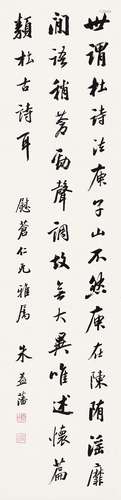 世謂杜詩法庾子山不然庾在陳隋淫靡
間語稍蒼勁聲調故無大異唯述懷篇
類杜古詩耳
慰蒼仁兄雅屬 朱益藩